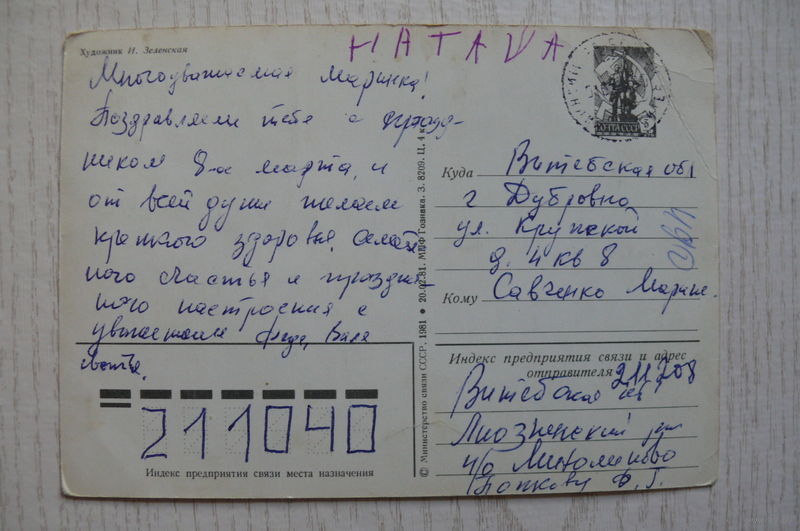 Художник И. Зеленская
НАТАША
Многоуважаемая Маринка!
Поздравляем тебя с празд-
ником 8-е марта, и
от всей души желаем
крепкого здоровья, семей
ного счастья и празднич
ного настроения с
уважением Федя, Валя
Света.
211040
Индекс предприятия связи места назначения
© Министерство связи СССР, 1981 ● 20.02.81. МПФ Гознака. З. 8209. Ц. 4 к.
ПОЧТА СССР
Куда Витебская обл
г Дубровно
ул. Крупской
д. 4 кв 8
Кому Савченко Марине.
Индекс предприятия связи и адрес
отправителя 211208
Витебская
Лиозненский
п/о